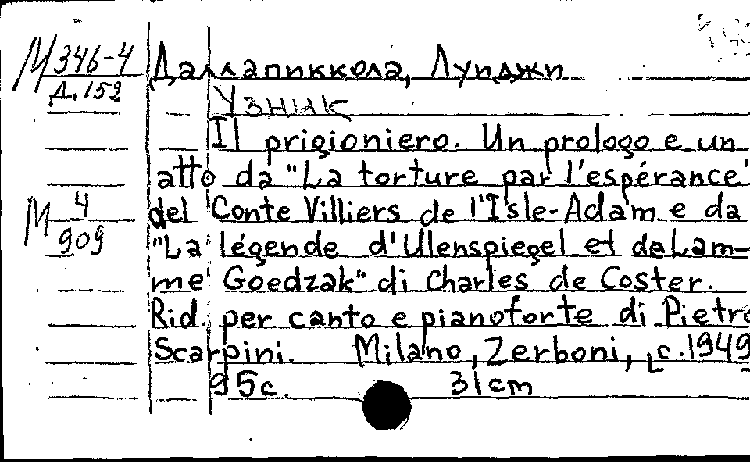 М 346-4
Д. 152
М 4
909
Даллапиккола, Луиджи
Узник
Il prigioniero. Un prologo e un
atto da "La torture par l'espérance"
del Conte Villiers de l'Isle-Adam e da
"La légende d'Ulenspiegel et de Lam-
me Goedzak" di Charles de Coster.
Rid. per canto e pianoforte di Pietro
Scarpini. Milano, Zerboni, [c.1949
95c. 31cm